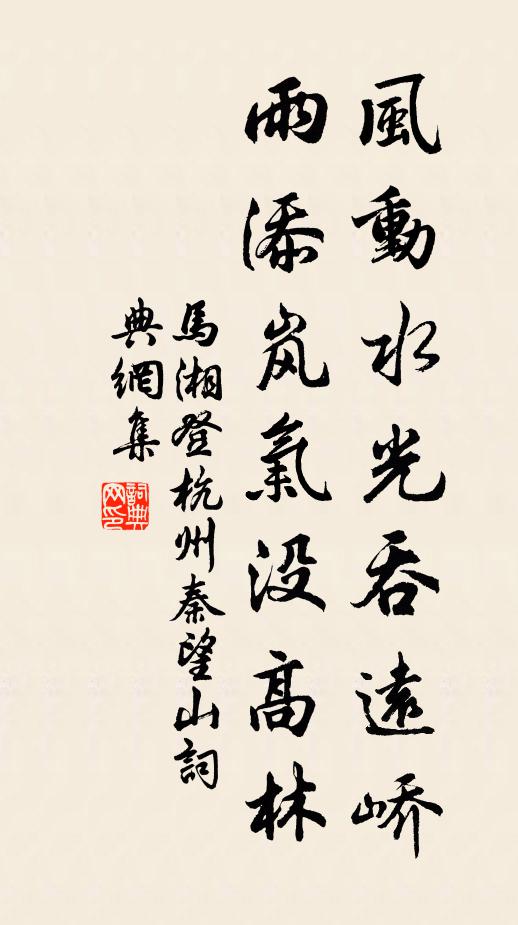 風動水光吞遠嶠
雨添岚氣没高林
馬湘登杭州秦望山詞
典網集
詞典
网印